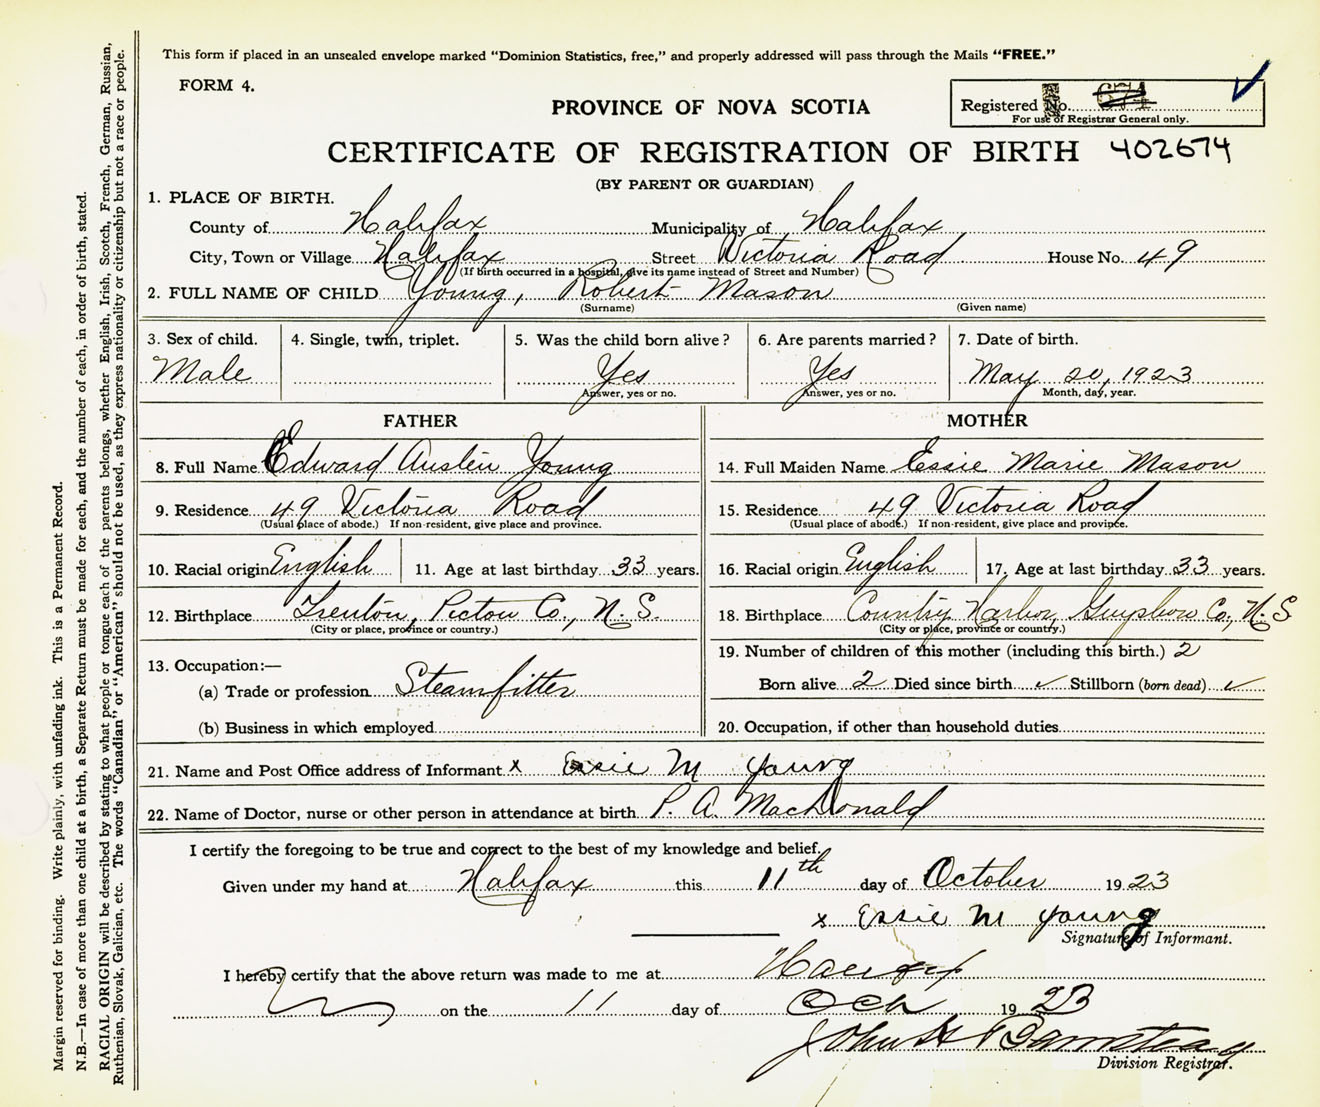 This form if placed in an unsealed envelope marked “Dominion Statistics, free,” and properly addressed will pass through the Mails “FREE.”
FORM 4.
Registered No. 674
For use of Registrar General only.
PROVINCE OF NOVA SCOTIA
CERTIFICATE OF REGISTRATION OF BIRTH 402674
(BY PARENT OR GUARDIAN)
1. PLACE OF BIRTH.
County of Halifax Municipality of Halifax
City, Town or Village Halifax Street Victoria Road House No. 49
(If birth occurred in a hospital, give its name instead of Street and Number)
2. FULL NAME OF CHILD Young, Robert Mason
(Surname) (Given name)
3. Sex of child. 4. Single, twin, triplet. 5. Was the child born alive? 6. Are parents married? 7. Date of birth.
Male Yes Yes May 20, 1923
Answer, yes or no. Answer, yes or no. Month, day, year.
FATHER MOTHER
8. Full Name Edward Austin Young 14. Full Maiden Name Essie Marie Mason
9. Residence 49 Victoria Road 15. Residence 49 Victoria Road
(Usual place of abode.) If non-resident, give place and province. (Usual place of abode.) If non-resident, give place and province.
10. Racial origin English 11. Age at last birthday 33 years. 16. Racial origin English 17. Age at last birthday 33 years.
12. Birthplace Trenton, Pictou Co., N.S. 18. Birthplace Country Harbor, Guysboro Co., N.S
(City or place, province or country.) (City or place, province or country.)
13. Occupation:— 19. Number of children of this mother (including this birth.) 2
(a) Trade or profession Steamfitter Born alive 2 Died since birth ✓ Stillborn (born dead) ✓
(b) Business in which employed 20. Occupation, if other than household duties
21. Name and Post Office address of Informant x Essie M Young
22. Name of Doctor, nurse or other person in attendance at birth P. A. MacDonald
I certify the foregoing to be true and correct to the best of my knowledge and belief.
Given under my hand at Halifax this 11th day of October 1923
x Essie M Young
Signature of Informant.
I hereby certify that the above return was made to me at Halifax
on the 11 day of Oct 1923
John H Barnstead
Division Registrar.
Margin reserved for binding. Write plainly, with unfading ink. This is a Permanent Record.
N.B.—In case of more than one child at a birth, a Separate Return must be made for each, and the number of each, in order of birth, stated.
RACIAL ORIGIN will be described by stating to what people or tongue each of the parents belongs, whether English, Irish, Scotch, French, German, Russian,
Ruthenian, Slovak, Galician, etc. The words “Canadian” or “American” should not be used, as they express nationality or citizenship but not a race or people.